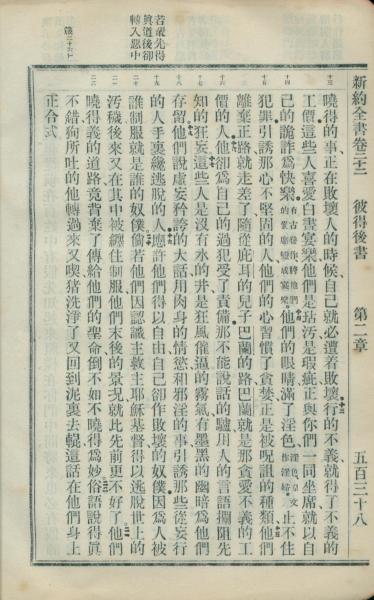 新約全書卷二十二 彼得後書 第二章 五百三十八
十三
曉得的事正在敗壞人的時候自己就必遭著敗壞行的不義就得了不義的
工價這些人喜愛白晝宴樂他們是玷污是瑕疵正與你們一同坐席就以自
十四
己的詭詐爲快樂 他們的眼睛滿了淫色 止不住
犯罪引誘那心不堅固的人他們的心習慣了貪婪正是被呪詛的種類他們
十五
離棄正路就走差了隨從庇耳的兒子巴蘭的路巴蘭就是那貪愛不義的工
十六
價的人他卻爲自己的過犯受了責備那不能說話的驢用人的言語攔阻先
十七
知的狂妄這些人是沒有水的井是狂風催逼的霧氣有墨黑的幽暗爲他們
十八
存留他們說虛妄矜誇的大話用肉身的情慾和邪淫的事引誘那些從妄行
十九
的人手裏纔逃脫的人應許他們得以自由自己卻作敗壞的奴僕因爲人被
二十
誰制服就是誰的奴僕倘若他們因認識主救主耶穌基督得以逃脫世上的
污穢後來又在其中被纏住制服他們末後的景況就比先前更不好了他們
二一
曉得義的道路竟背棄了傳給他們的聖命倒不如不曉得爲妙俗語說得眞
二二
不錯狗所吐的他轉過來又喫猪洗淨了又回到泥裏去輥這話在他們身上
正合式
若旣先得
眞道後卻
轉入惡中